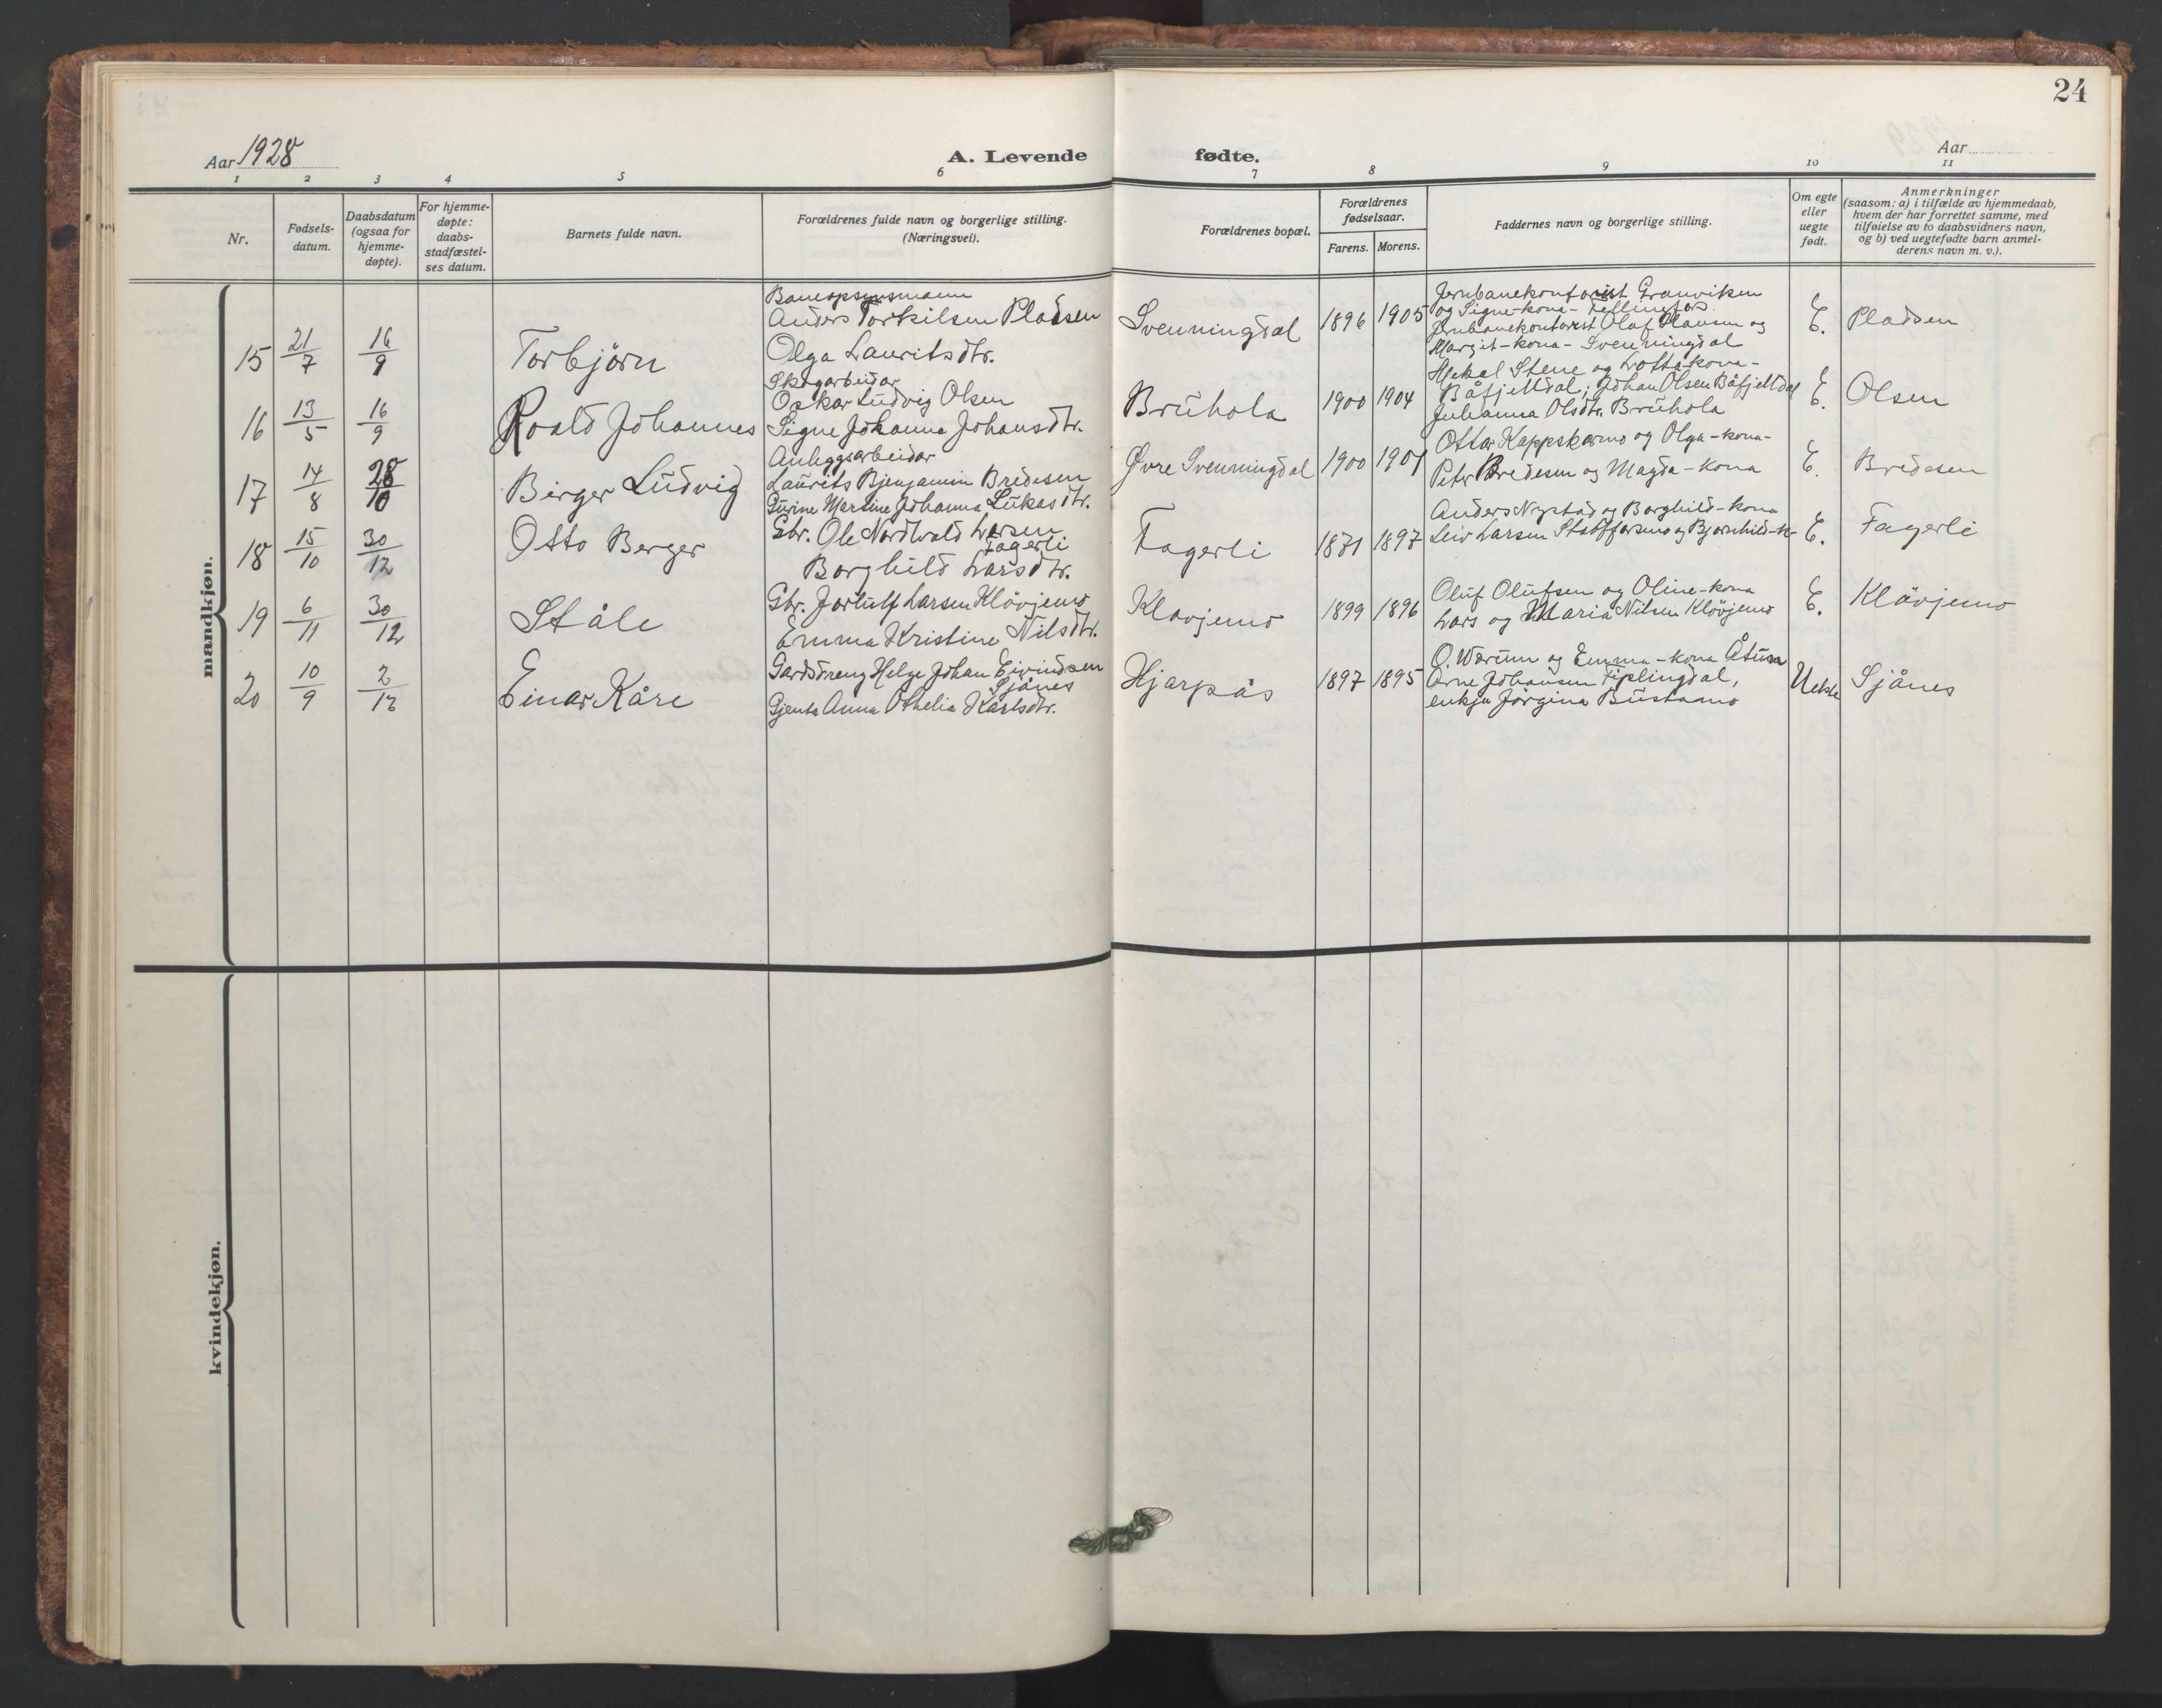 24
Aar 1928
A. Levende fødte.
Aar
1 2 3 4 5 6 7 8 9 10 11
Nr.
Fødsels-
datum.
Daabsdatum
(ogsaa for
hjemme-
døpte).
For hjemme-
døpte:
daabs-
stadfæstel-
ses datum.
Barnets fulde navn.
Forældrenes fulde navn og borgerlige stilling.
(Næringsvei).
Forældrenes bopæl.
Forældrenes
fødselsaar.
Farens. Morens.
Faddernes navn og borgerlige stilling.
Om egte
eller
uegte
født.
Anmerkninger
(saasom: a) i tilfælde av hjemmedaab,
hvem der har forrettet samme, med
tilføielse av to daabsvidners navn,
og b) ved uegtefødte barn anmel-
derens navn m. v.).
mandkjøn.
15 21/7 16/9 Torbjörn
Baneopsynsmann
Anders Torkilsen Pladsen
Olga Lauritsdtr.
Svenningdal 1896 1905
Jernbanekontorist Granviken
og Signe-kona-
Jernbanekontorist Olaf Hansen og
Margit-kona- Svenningdal
E. Pladsen
16 13/5 16/9 Roald Johannes
Skogarbeidar
Oskar Ludvig Olsen
Signe Johanna Johansdtr.
Bruhola 1900 1904
Stene og Lotta kona-
Båfjelldal; Johan Olsen Båfjelldal
Julianna Olsdtr. Bruhola
E. Olsen
17 14/8 28/10 Birger Ludvig
Anleggsarbeidar
Laurits Bjenjamin Bredesen
Gurine Martine Johanna Lukasdtr.
Øvre Svenningdal 1900 1901
Ottar Kappskarmo og Olga-kona-
Petr Bredesen og Magda-kona
E. Bredesen
18 15/10 30/12 Otto Berger
Gbr. Ole Nordhold Larsen
Fagerli
Borghild Larsdtr.
Fagerli 1871 1897
Anders Nystad og Borghild-kona
Leiv Larsen Stabfforsmo og Bjornhild-k-
E. Fagerli
19 6/11 30/12 Ståle
Gbr. Jorulf Larsen Klövjemo
Emma Kristine Nilsdtr.
Klovjemo 1899 1896
Oluf Olufsen og Oline-kona
Lars og Maria Nilsen Klövjemo
E. Klövjemo
20 10/9 2/12 Einar Kåre
Gardsdreng Helge Johan Eivindsen
Sjånes
Gjenta Anna Othelia Karlsdtr.
Hjarpås 1897 1895
O. Wærum og Emma-kona
Arne Johansen Fiplingdal,
enkja Jörgina Bustamo
Uekte Sjånes
kvindekjøn.